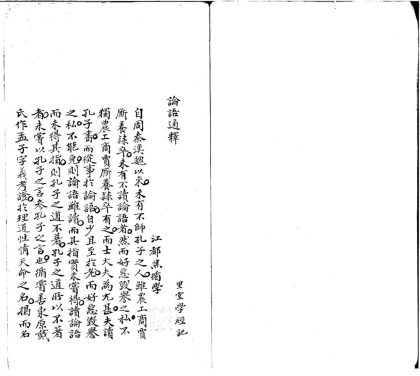 論語通釋
江都焦循學
里堂學經記
自周秦漢魏以來未有不師孔子之人雖農工商賈
厮養隸卒未有不讀論語者然而好惡毀譽之私不
獨農工商賈厮養隸卒有之而士大夫爲尤甚夫讀
孔子書而從事於論語自少且至於老而好惡毀譽
之私不能免則論語雖讀而其指實未嘗得讀論語
而未得其指則孔子之道不著孔子之道所以不著
者未嘗以孔子之言參孔子之言也循嘗善東原戴
氏作孟子字義考證於理道性情天命之名揭而名